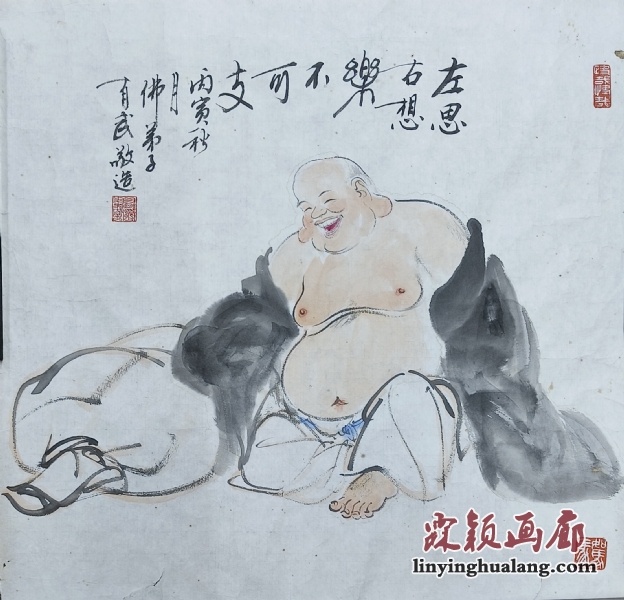 左思
右想
樂
不
可
支
丙寅秋
月
佛弟子
武敬造
霖颖画廊
linyinghualang.com